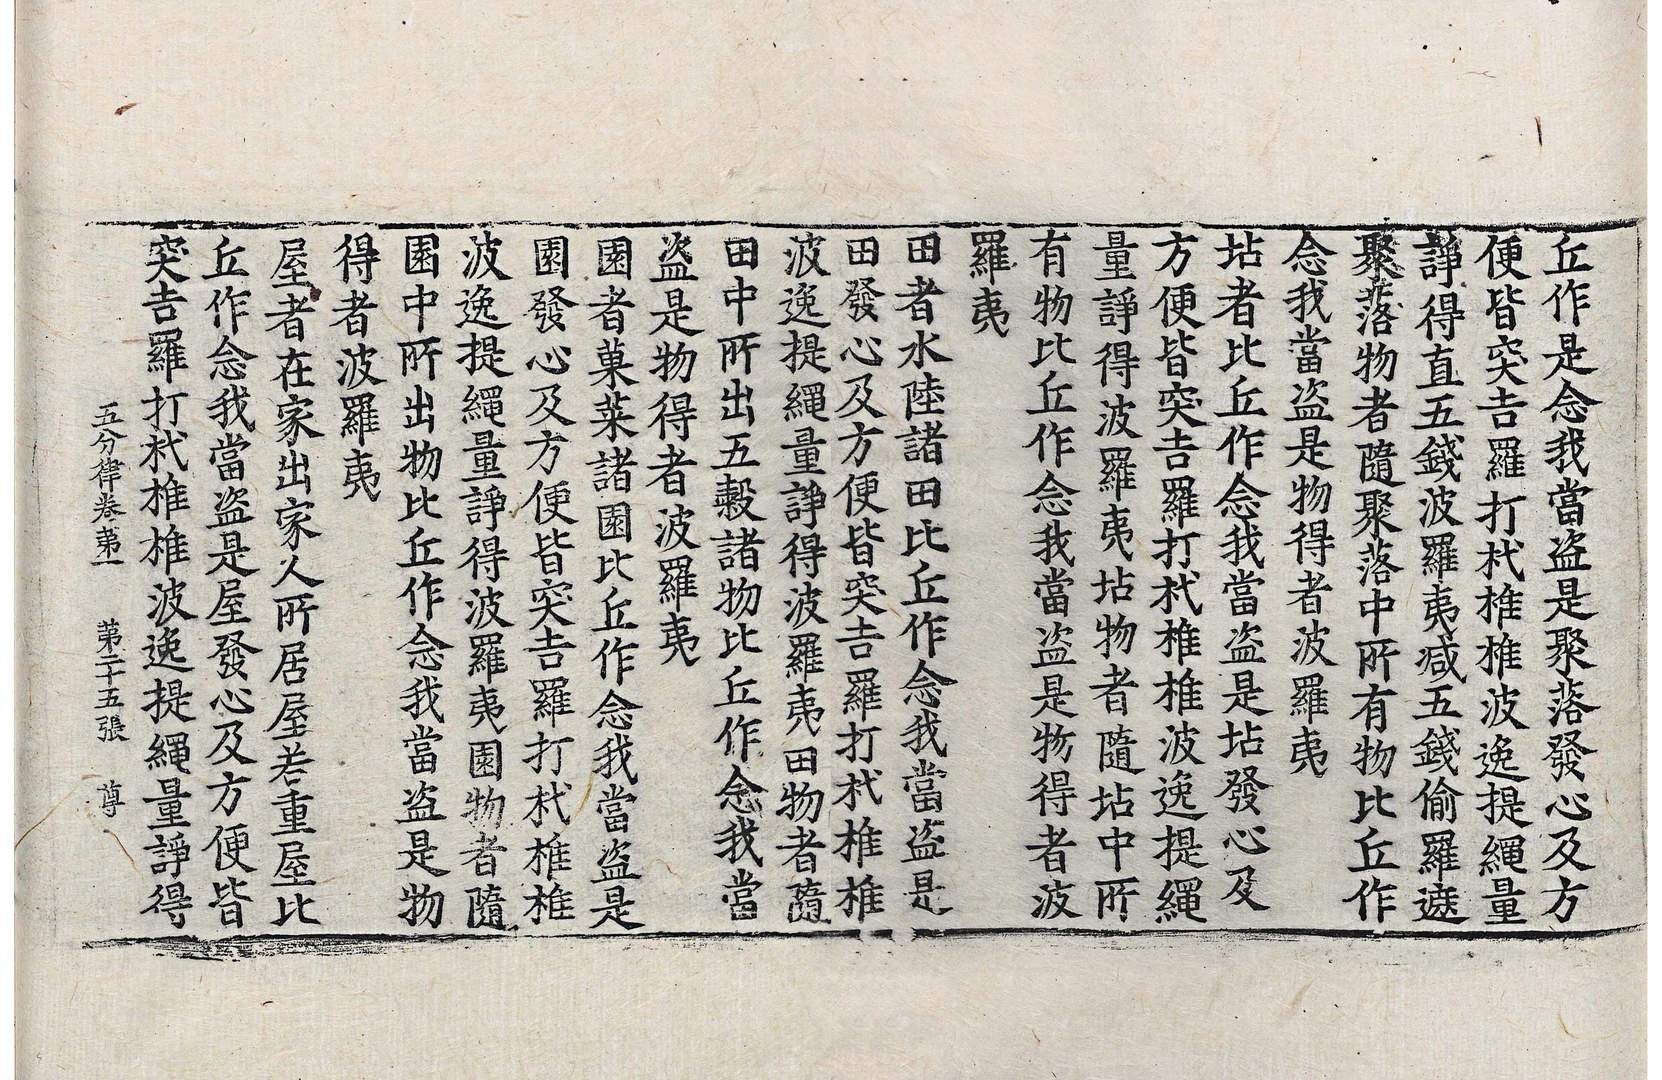 丘作是念我當盜是聚落發心及方
便皆突吉羅打杙椎椎波逸提繩量
諍得直五錢波羅夷減五錢偷羅遮
聚落物者隨聚落中所有物比丘作
念我當盜是物得者波羅夷
坫者比丘作念我當盜是坫發心及
方便皆突吉羅打杙椎椎波逸提繩
量諍得波羅夷坫物者隨坫中所
有物比丘作念我當盜是物得者波
羅夷
田者水陸諸田比丘作念我當盜是
田發心及方便皆突吉羅打杙椎椎
波逸提繩量諍得波羅夷田物者隨
田中所出五穀諸物比丘作念我當
盜是物得者波羅夷
園者菓菜諸園比丘作念我當盜是
園發心及方便皆突吉羅打杙椎椎
波逸提繩量諍得波羅夷園物者隨
園中所出物比丘作念我當盜是物
得者波羅夷
屋者在家出家人所居屋若重屋比
丘作念我當盜是屋發心及方便皆
突吉羅打杙椎椎波逸提繩量諍得
五分律卷第一 第二十五張 尊